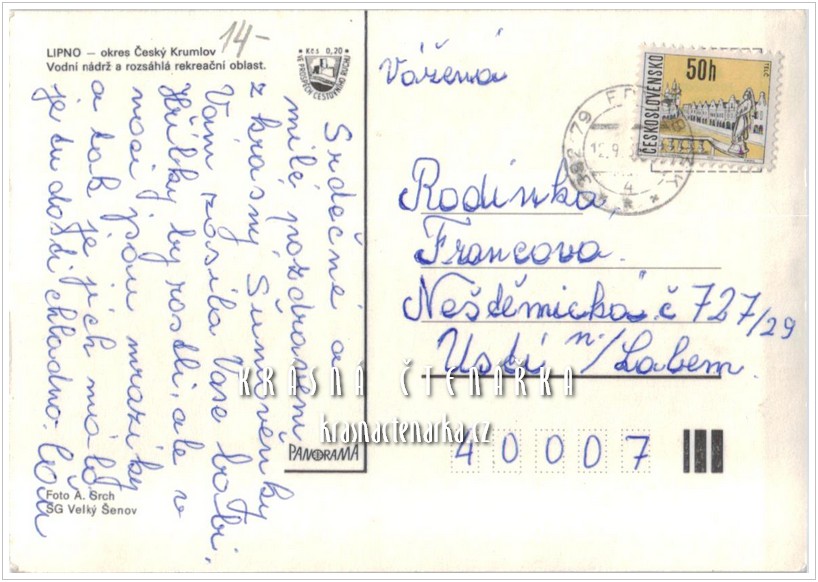 LIPNO — okres Český Krumlov
Vodní nádrž a rozsáhlá rekreační oblast.
14-
Kčs 0,20
VE PROSPĚCH CESTOVNÍHO RUCHU
Srdečné a
milé pozdravení
z krásný Šumavěnky
Vám zosílá Vaše babi.
Hřibky by rostli, ale v
noci jsou mrazíky
a tak je jich málo
je tu dosti chladno.
Foto A. Srch
SG Velký Šenov
PANORAMA
Vážená
Rodinka
Francova.
Neštěmická č 727/29
Ustí n/Labem.
40007
50h
ČESKOSLOVENSKO
TELČ
382 79
4
KRÁSNÁ ČTENÁŘKA
krasnactenarka.cz